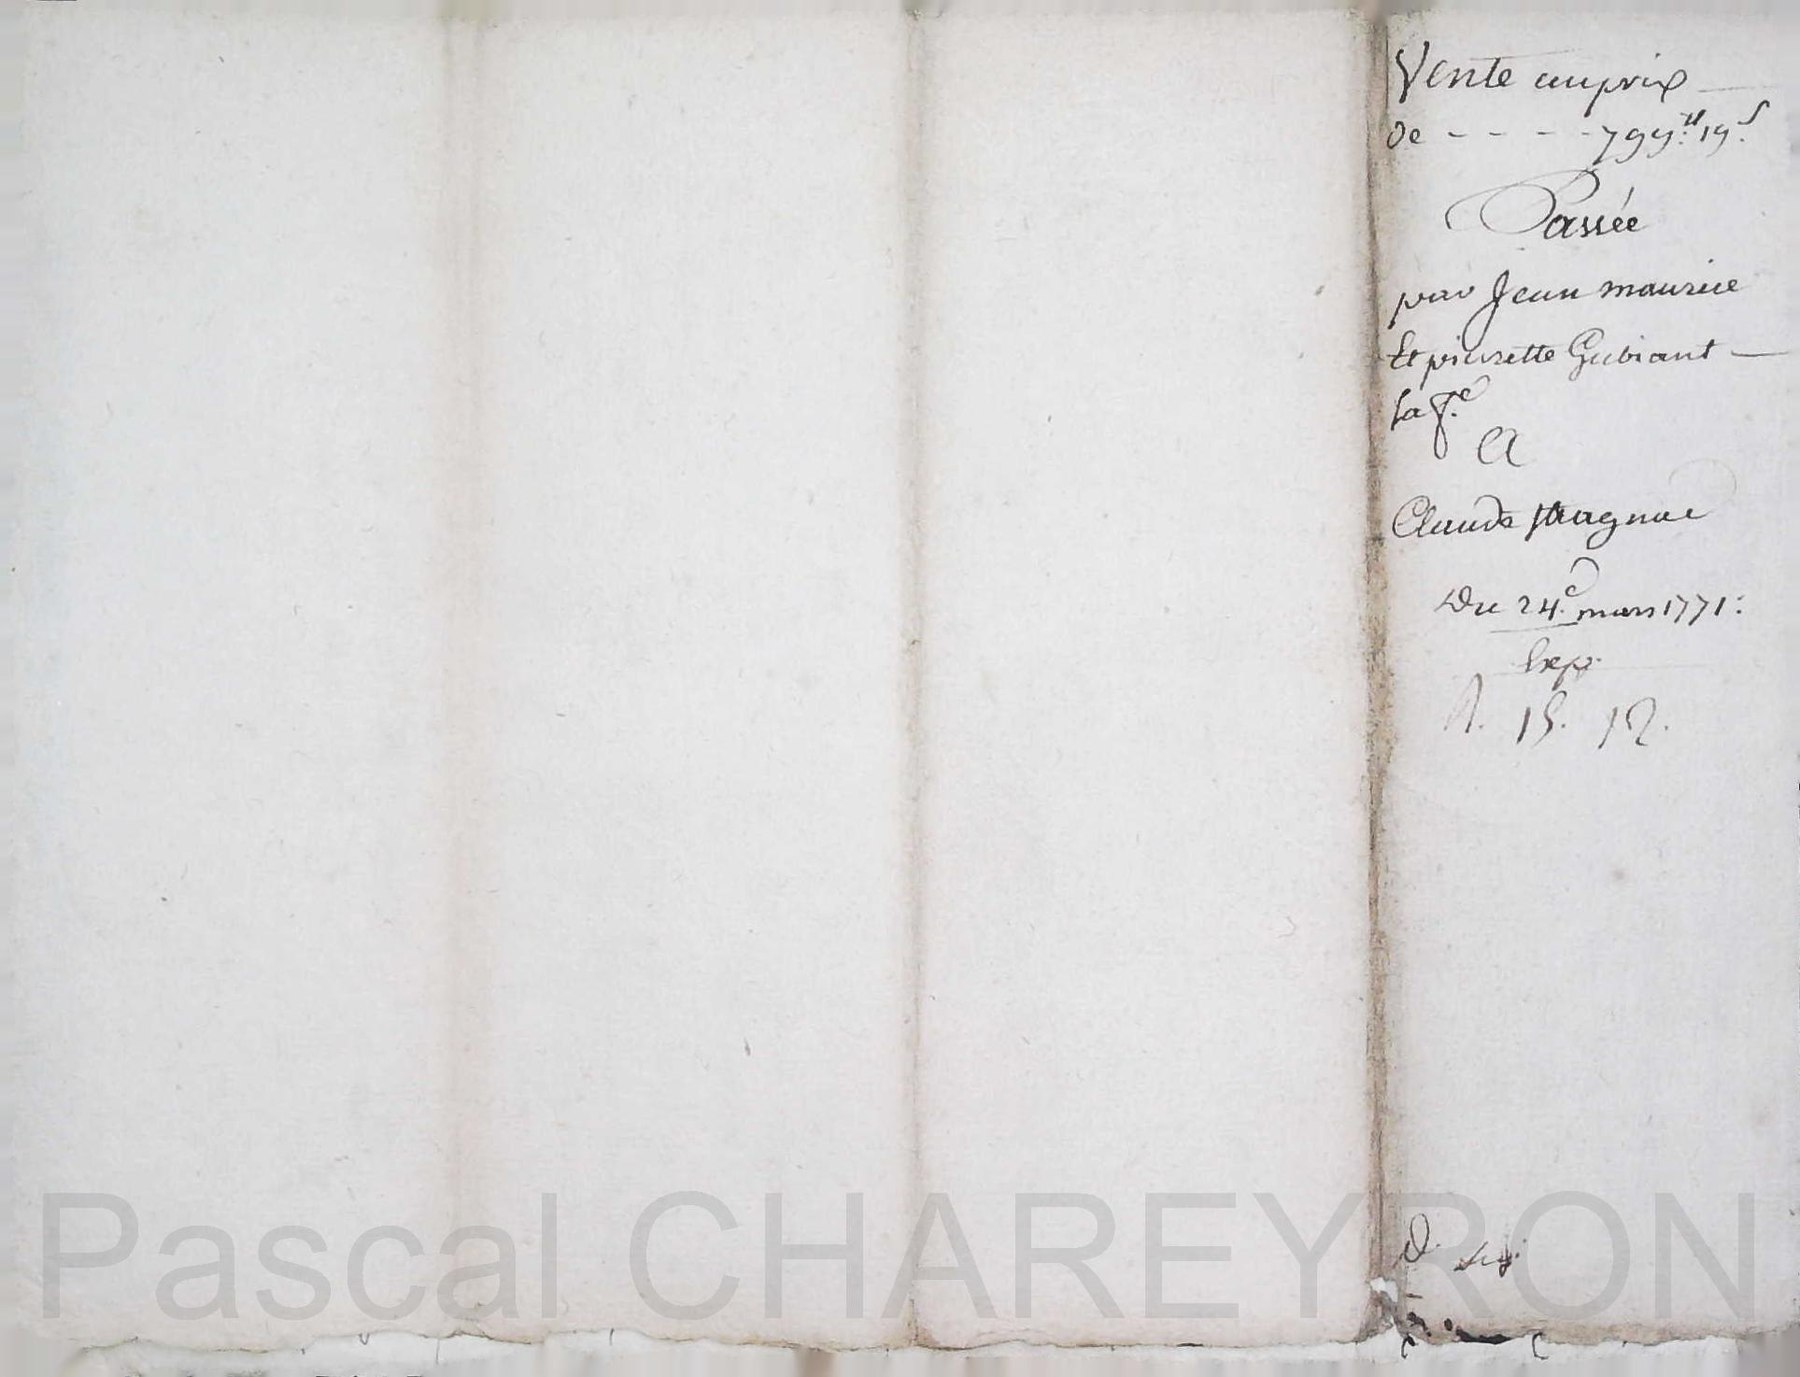 Vente au prix
de - - - - 799.ᵗᵗ 19.ˢ
Passée
par Jean maurice
Et pierrette Gubiant
sa f.ᵉ
A
Claude Magnac
Du 24.ᵉ mars 1771.
Exp.
15. 12.
Pascal CHAREYRON